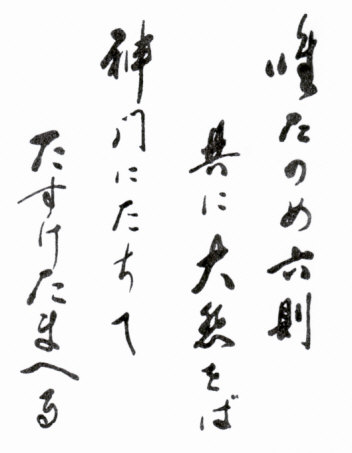 唯たのめ六則
共に大慈をば
神門にたちて
たすけたまへる